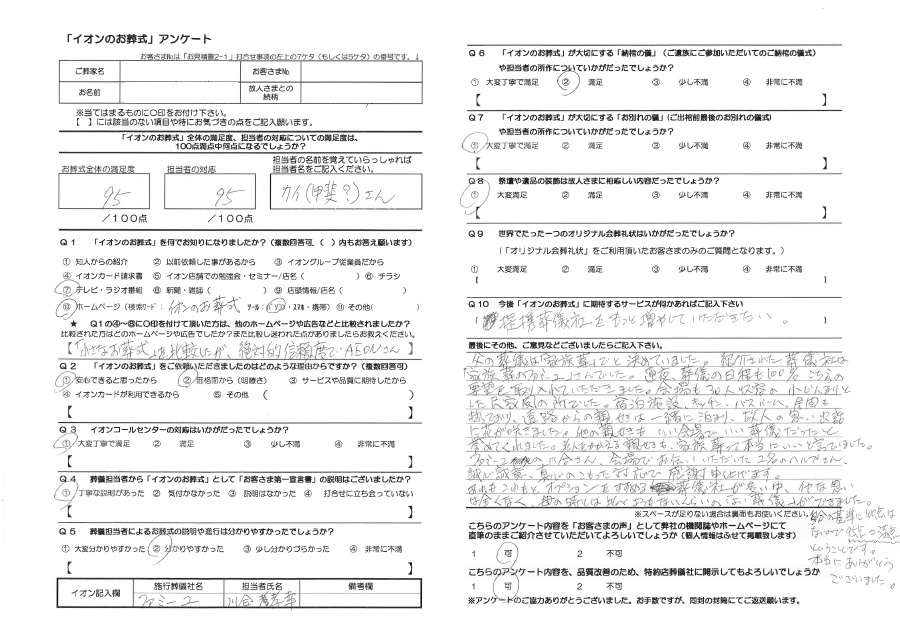 「イオンのお葬式」アンケート
お客さまNo.は「お見積書2-1」打合せ事項の左上の7ケタ（もしくは5ケタ）の番号です。↓
ご葬家名
お客さまNo.
お名前
故人さまとの続柄
※当てはまるものに○印をお付け下さい。
【 】には該当のない項目や特にお気づきの点をご記入願います。
「イオンのお葬式」全体の満足度、担当者の対応についての満足度は、
100点満点中何点になるでしょうか？
お葬式全体の満足度
担当者の対応
担当者の名前を覚えていらっしゃれば
担当者名をご記入ください。
95
95
カイ(甲斐?)さん
/100点
/100点
Q1 「イオンのお葬式」を何でお知りになりましたか？（複数回答可。（ ）内もお答え願います）
① 知人からの紹介 ② 以前依頼した事があるから ③ イオングループ従業員だから
④ イオンカード請求書 ⑤ イオン店舗での勉強会・セミナー/店名（ ） ⑥ チラシ
⑦ テレビ・ラジオ番組 ⑧ 新聞・雑誌（ ） ⑨ 店頭情報/店名（ ）
⑩ ホームページ（検索ワード： イオンのお葬式 ツール：パソコン・スマホ・携帯） ⑪ その他（ ）
★ Q1の④～⑧に○印を付けて頂いた方は、他のホームページや広告などと比較されましたか？
比較された方はどのホームページでしたか？また比較し迷われた点がありましたらお教えください。
【「小さなお葬式」を比較したが、絶対的信頼度でAEONさん】
Q2 「イオンのお葬式」をご依頼いただきましたのはどのような理由からですか？（複数回答可）
① 安心できると思ったから ② 価格面から（明瞭さ） ③ サービスや品質に期待したから
④ イオンカードが利用できるから ⑤ その他（ ）
Q3 イオンコールセンターの対応はいかがだったでしょうか？
① 大変丁寧で満足 ② 満足 ③ 少し不満 ④ 非常に不満
【 】
Q4 葬儀担当者から「イオンのお葬式」として「お客さま第一宣言書」の説明はございましたか？
① 丁寧な説明があった ② 気付かなかった ③ 説明はなかった ④ 打合せに立ち会っていない
【 】
Q5 葬儀担当者によるお葬式の説明や進行は分かりやすかったでしょうか？
① 大変分かりやすかった ② 分かりやすかった ③ 少し分かりづらかった ④ 非常に不満
【 】
イオン記入欄
施行葬儀社名
担当者氏名
備考欄
ファミーユ
Q6 「イオンのお葬式」が大切にする「納棺の儀」（ご遺族にご参加いただいてのご納棺の儀式）
や担当者の所作についていかがだったでしょうか？
① 大変丁寧で満足 ② 満足 ③ 少し不満 ④ 非常に不満
【 】
Q7 「イオンのお葬式」が大切にする「お別れの儀」（ご出棺前最後のお別れの儀式）
や担当者の所作についていかがだったでしょうか？
① 大変丁寧で満足 ② 満足 ③ 少し不満 ④ 非常に不満
【 】
Q8 祭壇や遺品の装飾は故人さまに相応しい内容だったでしょうか？
① 大変満足 ② 満足 ③ 少し不満 ④ 非常に不満
【 】
Q9 世界でたった一つのオリジナル会葬礼状はいかがだったでしょうか？
（「オリジナル会葬礼状」をご利用頂いたお客さまのみのご質問となります。）
① 大変満足 ② 満足 ③ 少し不満 ④ 非常に不満
Q10 今後「イオンのお葬式」に期待するサービスが何かあればご記入下さい
提携葬儀社をもっと増やしていただきたい。
最後にその他、ご意見などございましたらご記入下さい。
父の葬儀は「家族葬」でと決めていました。紹介された葬儀社は
家族葬のファミーユさんでした。通夜、葬儀の日程も100%こちらの
要望を取り入れていただきました。会場も30人収容の小ぢんまりと
した民家風の所でした。宿泊施設、キッチン、バスルーム、居間も
揃っており、遠路からの親せきは一緒に泊まり、故人の思い出話
に花が咲きました。他の親せきもいい会場でいい葬儀だったと
誉めてくれました。
※スペースが足りない場合は裏面もお使いください。
こちらのアンケート内容を「お客さまの声」として弊社の機関誌やホームページにて
直筆のままご紹介させていただいてよろしいでしょうか（個人情報はふせて掲載致します）
1 可 2 不可
こちらのアンケート内容を、品質改善のため、特約店葬儀社に開示してもよろしいでしょうか
1 可 2 不可
※アンケートのご協力ありがとうございました。お手数ですが、同封の封筒にてご返送願います。
ということです。
本当にありがとう
ございました。